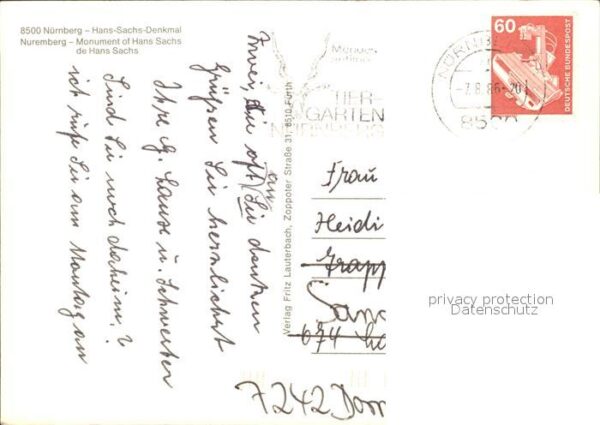 8500 Nürnberg – Hans-Sachs-Denkmal
Nuremberg – Monument of Hans Sachs
de Hans Sachs
Zwei, die oft
an Sie denken
Grüßen Sie herzlichst
Ihre G. u. Schwester
Sind Sie noch daheim?
ich rufe Sie am Montag an
Verlag Fritz Lauterbach, Zoppoter Straße 31, 8510 Fürth
Mendes
TIER-
GARTEN
NÜRNBERG
NÜRNB
-7.8.86-20
8500
60
DEUTSCHE BUNDESPOST
Frau
Heidi
Grapp
674
7242 Dorn
privacy protection
Datenschutz